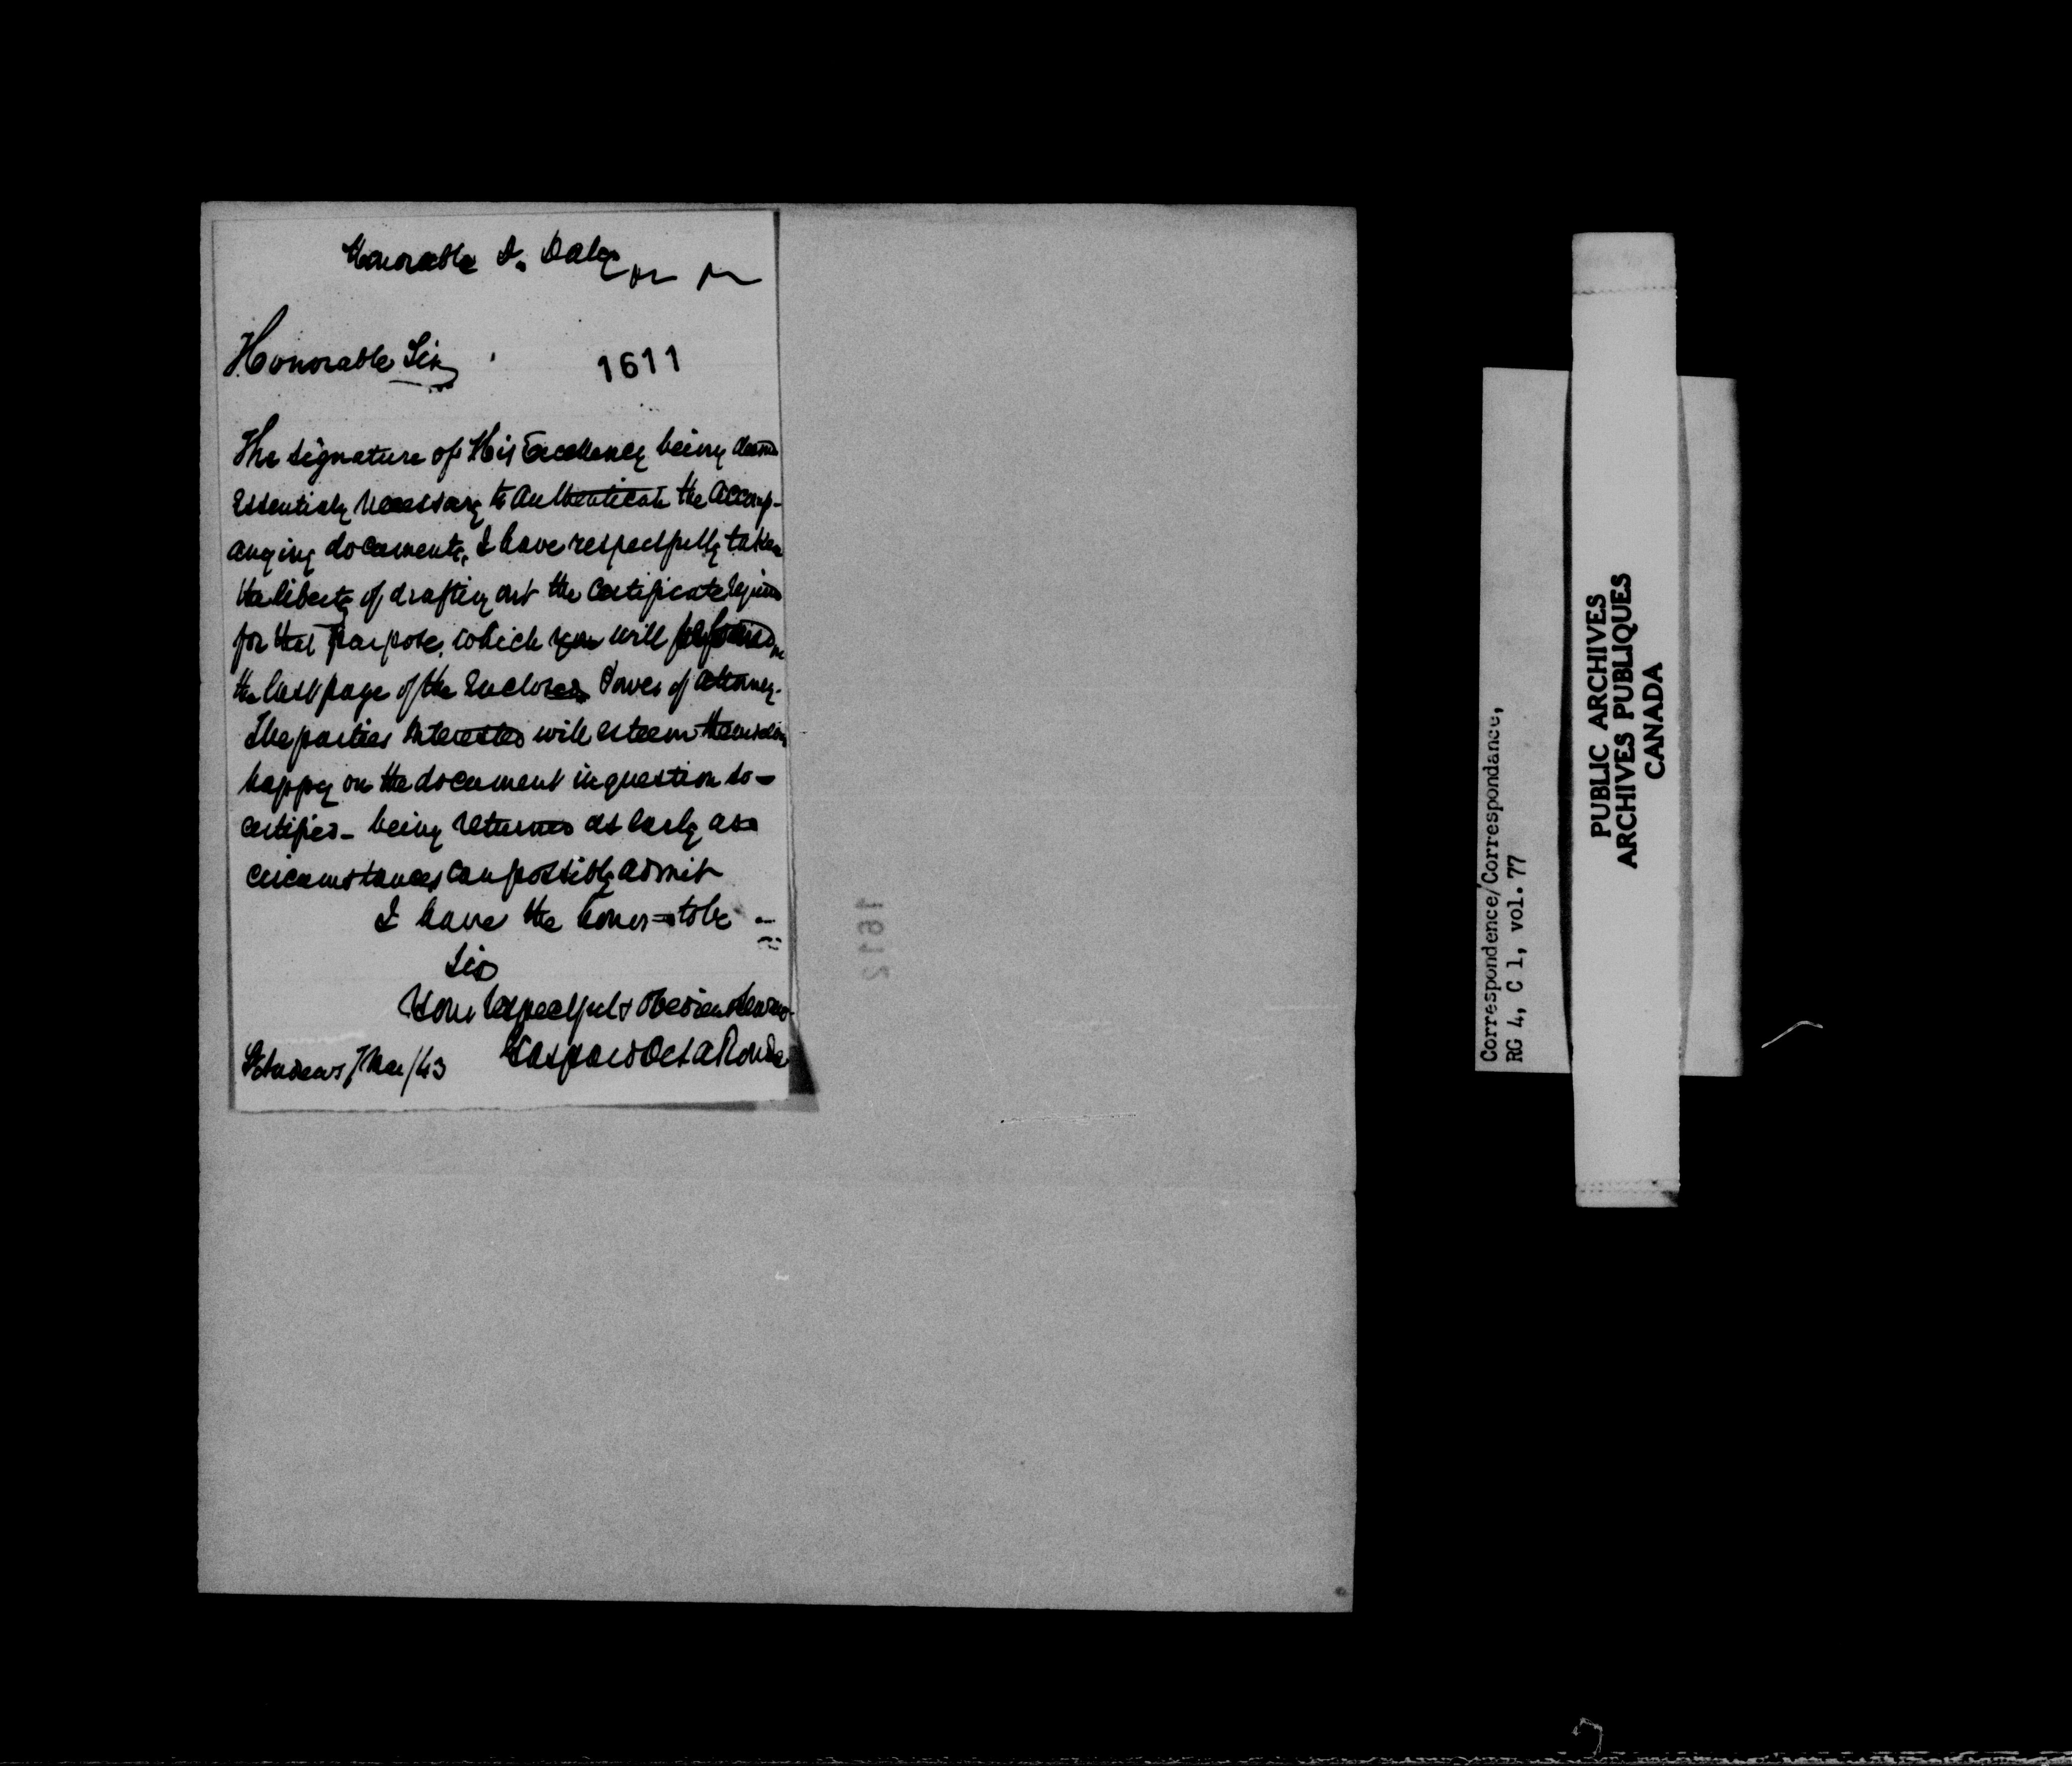 Honorable D. Daly
Honorable Sir
1611
The signature of His Excellency being deemed
essentialy necessary to authenticate the accomp-
anying documents, I have respectfully taken
the liberty of drafting out the certificate required
for that purpose, which you will find on
the last page of the enclosed Power of attorney.
The parties interested will esteem themselves
happy on the document in question so-
certified - being returned as early as
circumstances can possibly admit
I have the honor to be
Sir
Your respectful & obedient servant
De La Ronde
St Andrews 7 Mar/43
1612
Correspondence/Correspondance,
RG 4, C 1, vol. 77
PUBLIC ARCHIVES
ARCHIVES PUBLIQUES
CANADA